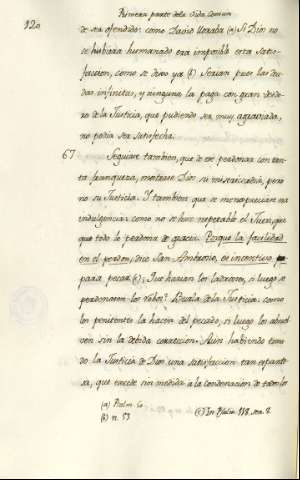 Primera parte de la Vida Comun
120
de ser ofendido: como David lloraba (a) Si Dios no
se hubiera humanado era imposible esta satis-
faccion, como se dixo ya (b) Serian pues las deu-
das infinitas, y ninguna la paga con gran desdo-
ro de la Justicia, que pudiendo ser muy agraviada,
no podia ser satisfecha.
67 Seguiase tambien, que de ese perdonar con tanta
franqueza, mostrase Dios su misericordia, pero
no su Justicia. Y tambien que se menospreciase la
indulgencia: como no se hace respetable el Juez,
que todo lo perdona de gracia. Porque la facilidad
en el perdon, dice San Ambrosio, es incentivo
para pecar (c): Que harian los ladrones, si luego se
perdonasen los robos? Burla de la Justicia: como
los penitentes la hacen del pecado, si luego los absuel-
ven sin la debida correccion. Aun habiendo teni-
do la Justicia de Dios una satisfaccion tan espanto-
sa, que excede sin medida a la condenacion de todos los
(a) Psalm. 50.
(b) n. 53
(c) In Psalm. 118. ser. 8.